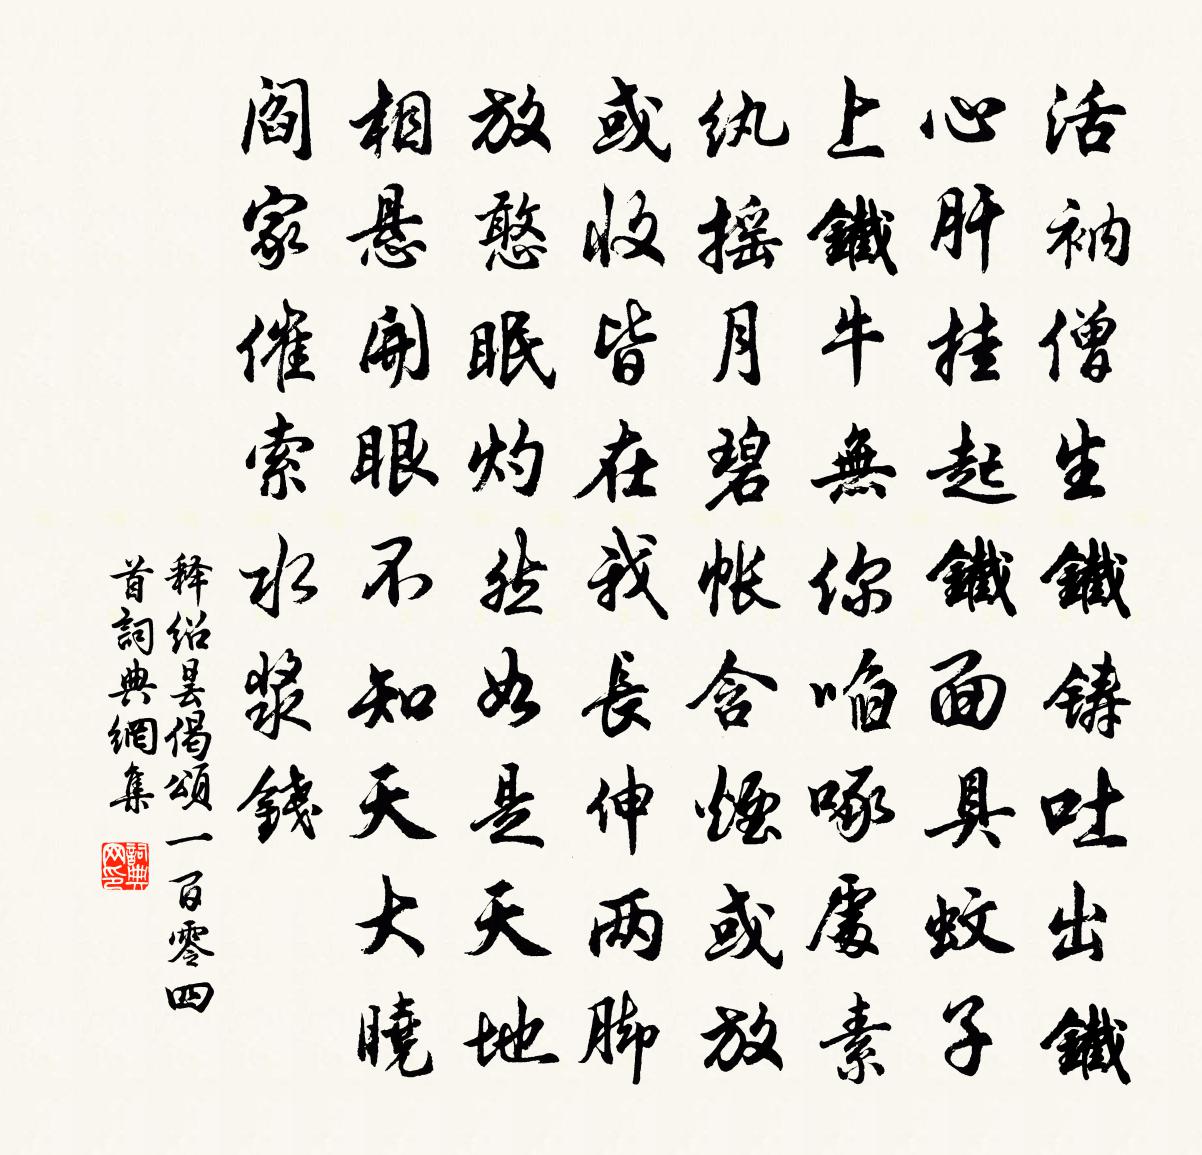 活衲僧生鐵鑄吐出鐵
心肝挂起鐵面具蚊子
上鐵牛無你啗啄處素
紈摇月碧帐含煙或放
或收皆在我長伸两脚
放憨眠灼然如是天地
相悬開眼不知天大曉
阎家催索水漿錢
释绍昙偈頌一百零四
首詞典網集
詞典网印